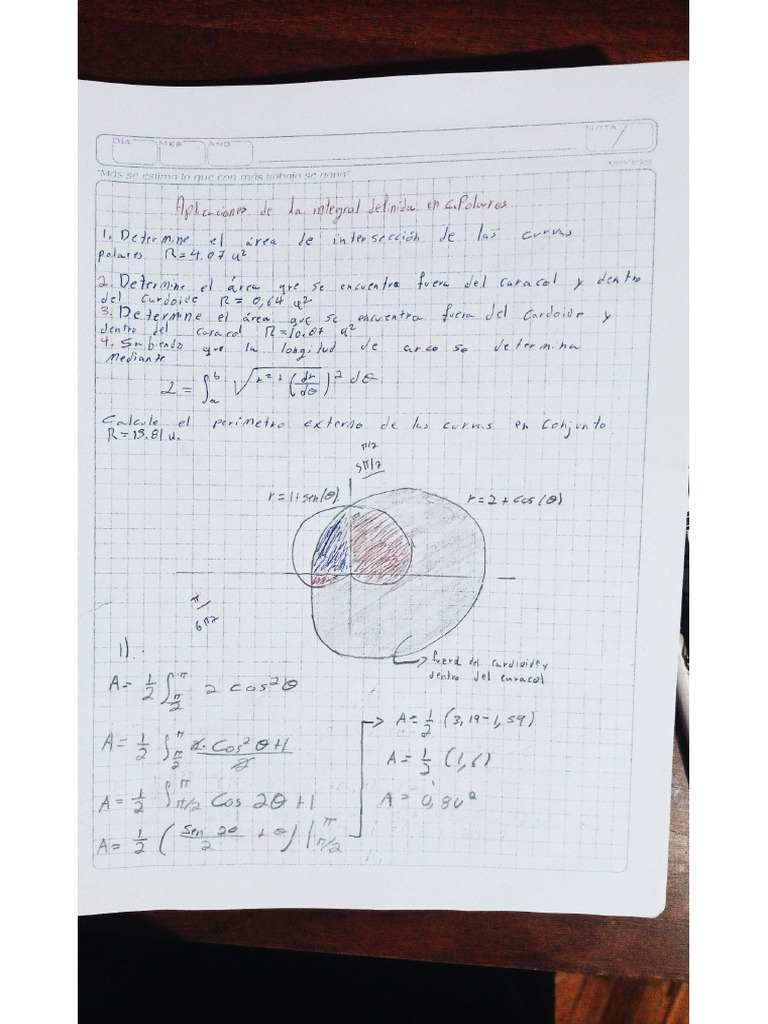 DÍA MES AÑO NOTA 7
"Más se estima lo que con más trabajo se gana"
Aristóteles
Aplicaciones de la integral definida en c. Polares
1. Determine el área de intersección de las curvas
polares R=4.07 u²
2. Determine el área que se encuentra fuera del caracol y dentro
del cardoide R= 0,64 u²
3. Determine el área que se encuentra fuera del cardoide y
dentro del caracol R=10.07 u²
4. Sabiendo que la longitud de arco se determina
mediante
L = ∫_a^b √(r² + (dr/dθ)² dθ
Calcule el perímetro externo de las curvas en conjunto
R=13.81 u.
π/2
5π/2
r=1+sen(θ)
r=2+cos(θ)
π/6π2
1)
fuera del cardioide y
dentro del caracol
A= 1/2 ∫_{π/2}^π 2 cos²θ
A= 1/2 ∫_{π/2}^π 2·Cos²θ+1 / 2
A= 1/2 ∫_{π/2}^π Cos 2θ+1
A= 1/2 ( Sen 2θ / 2 + θ ) |_{π/2}^π
→ A= 1/2 (3,19-1,59)
A= 1/2 (1,6)
A= 0,8 u²